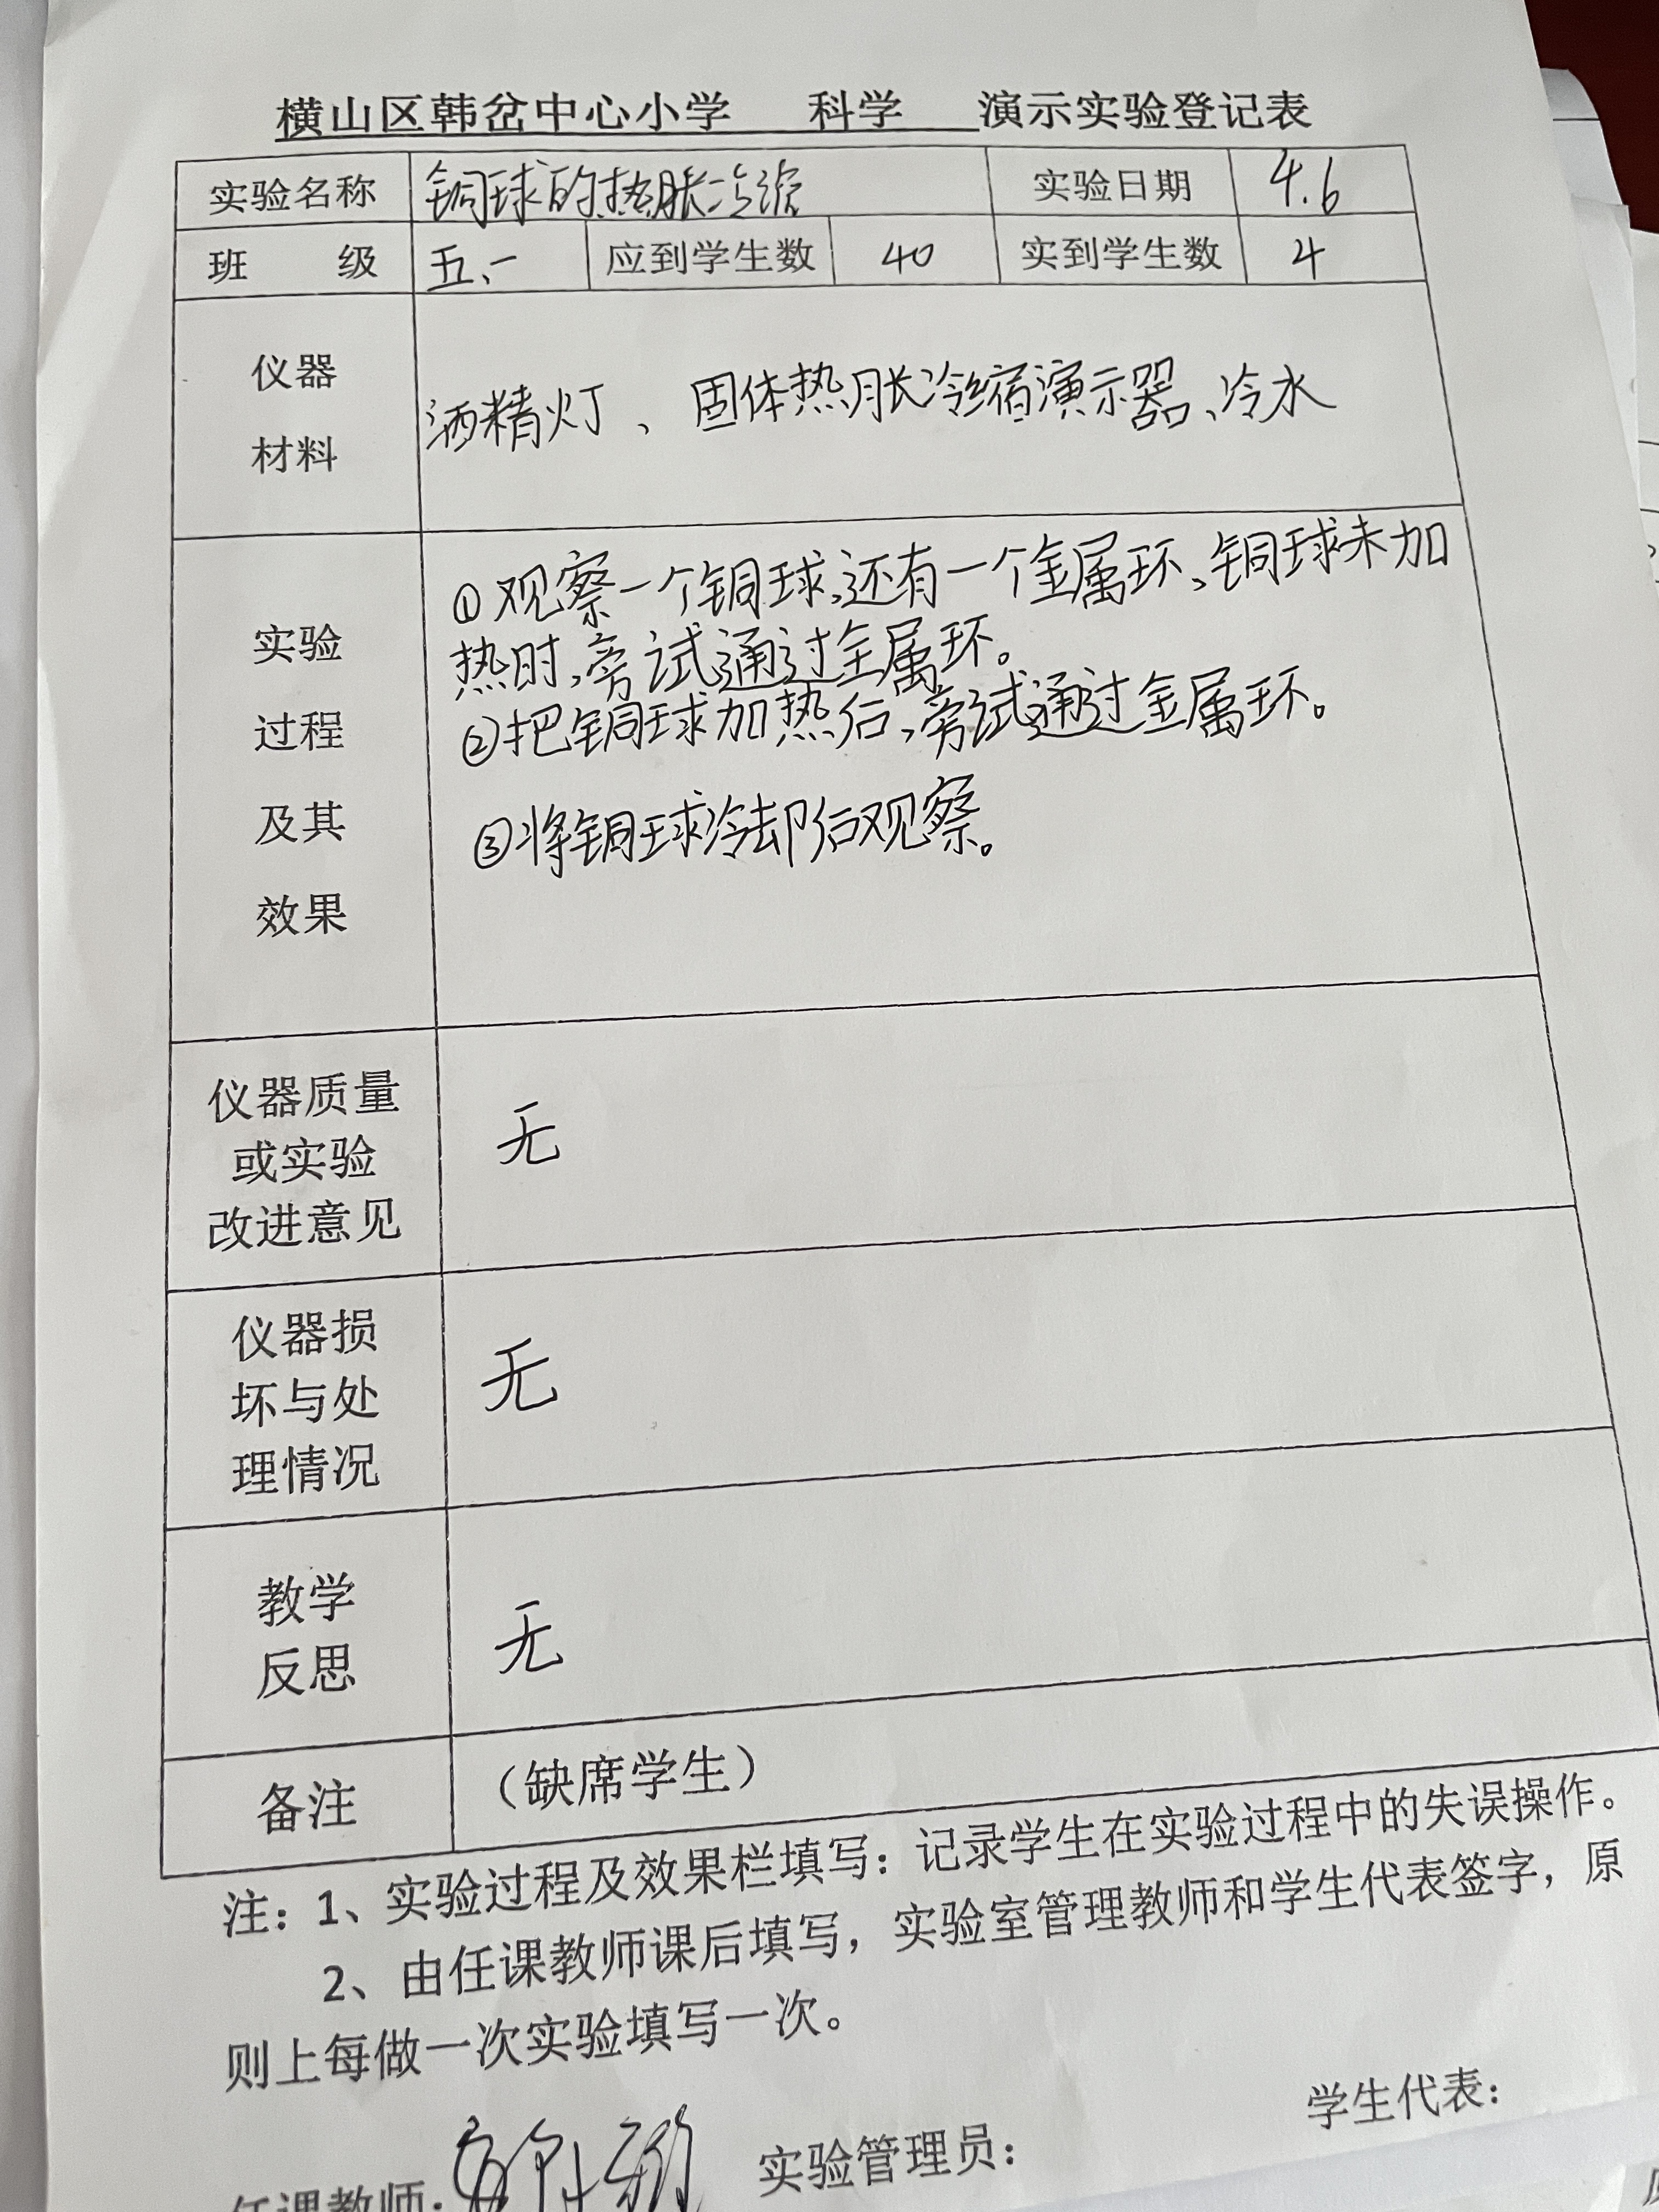 横山区韩岔中心小学 科学 演示实验登记表
实验名称 铜球的热胀冷缩 实验日期 4.6
班 级 五、一 应到学生数 40 实到学生数 4
仪器
材料
酒精灯、固体热胀冷缩演示器、冷水
实验
过程
及其
效果
①观察一个铜球,还有一个金属环,铜球未加
热时,旁试通过金属环。
②把铜球加热后,旁试通过金属环。
③将铜球冷却后观察。
仪器质量
或实验
改进意见
无
仪器损
坏与处
理情况
无
教学
反思
无
备注 （缺席学生）
注：1、实验过程及效果栏填写：记录学生在实验过程中的失误操作。
2、由任课教师课后填写，实验室管理教师和学生代表签字，原
则上每做一次实验填写一次。
任课教师： 实验管理员： 学生代表：